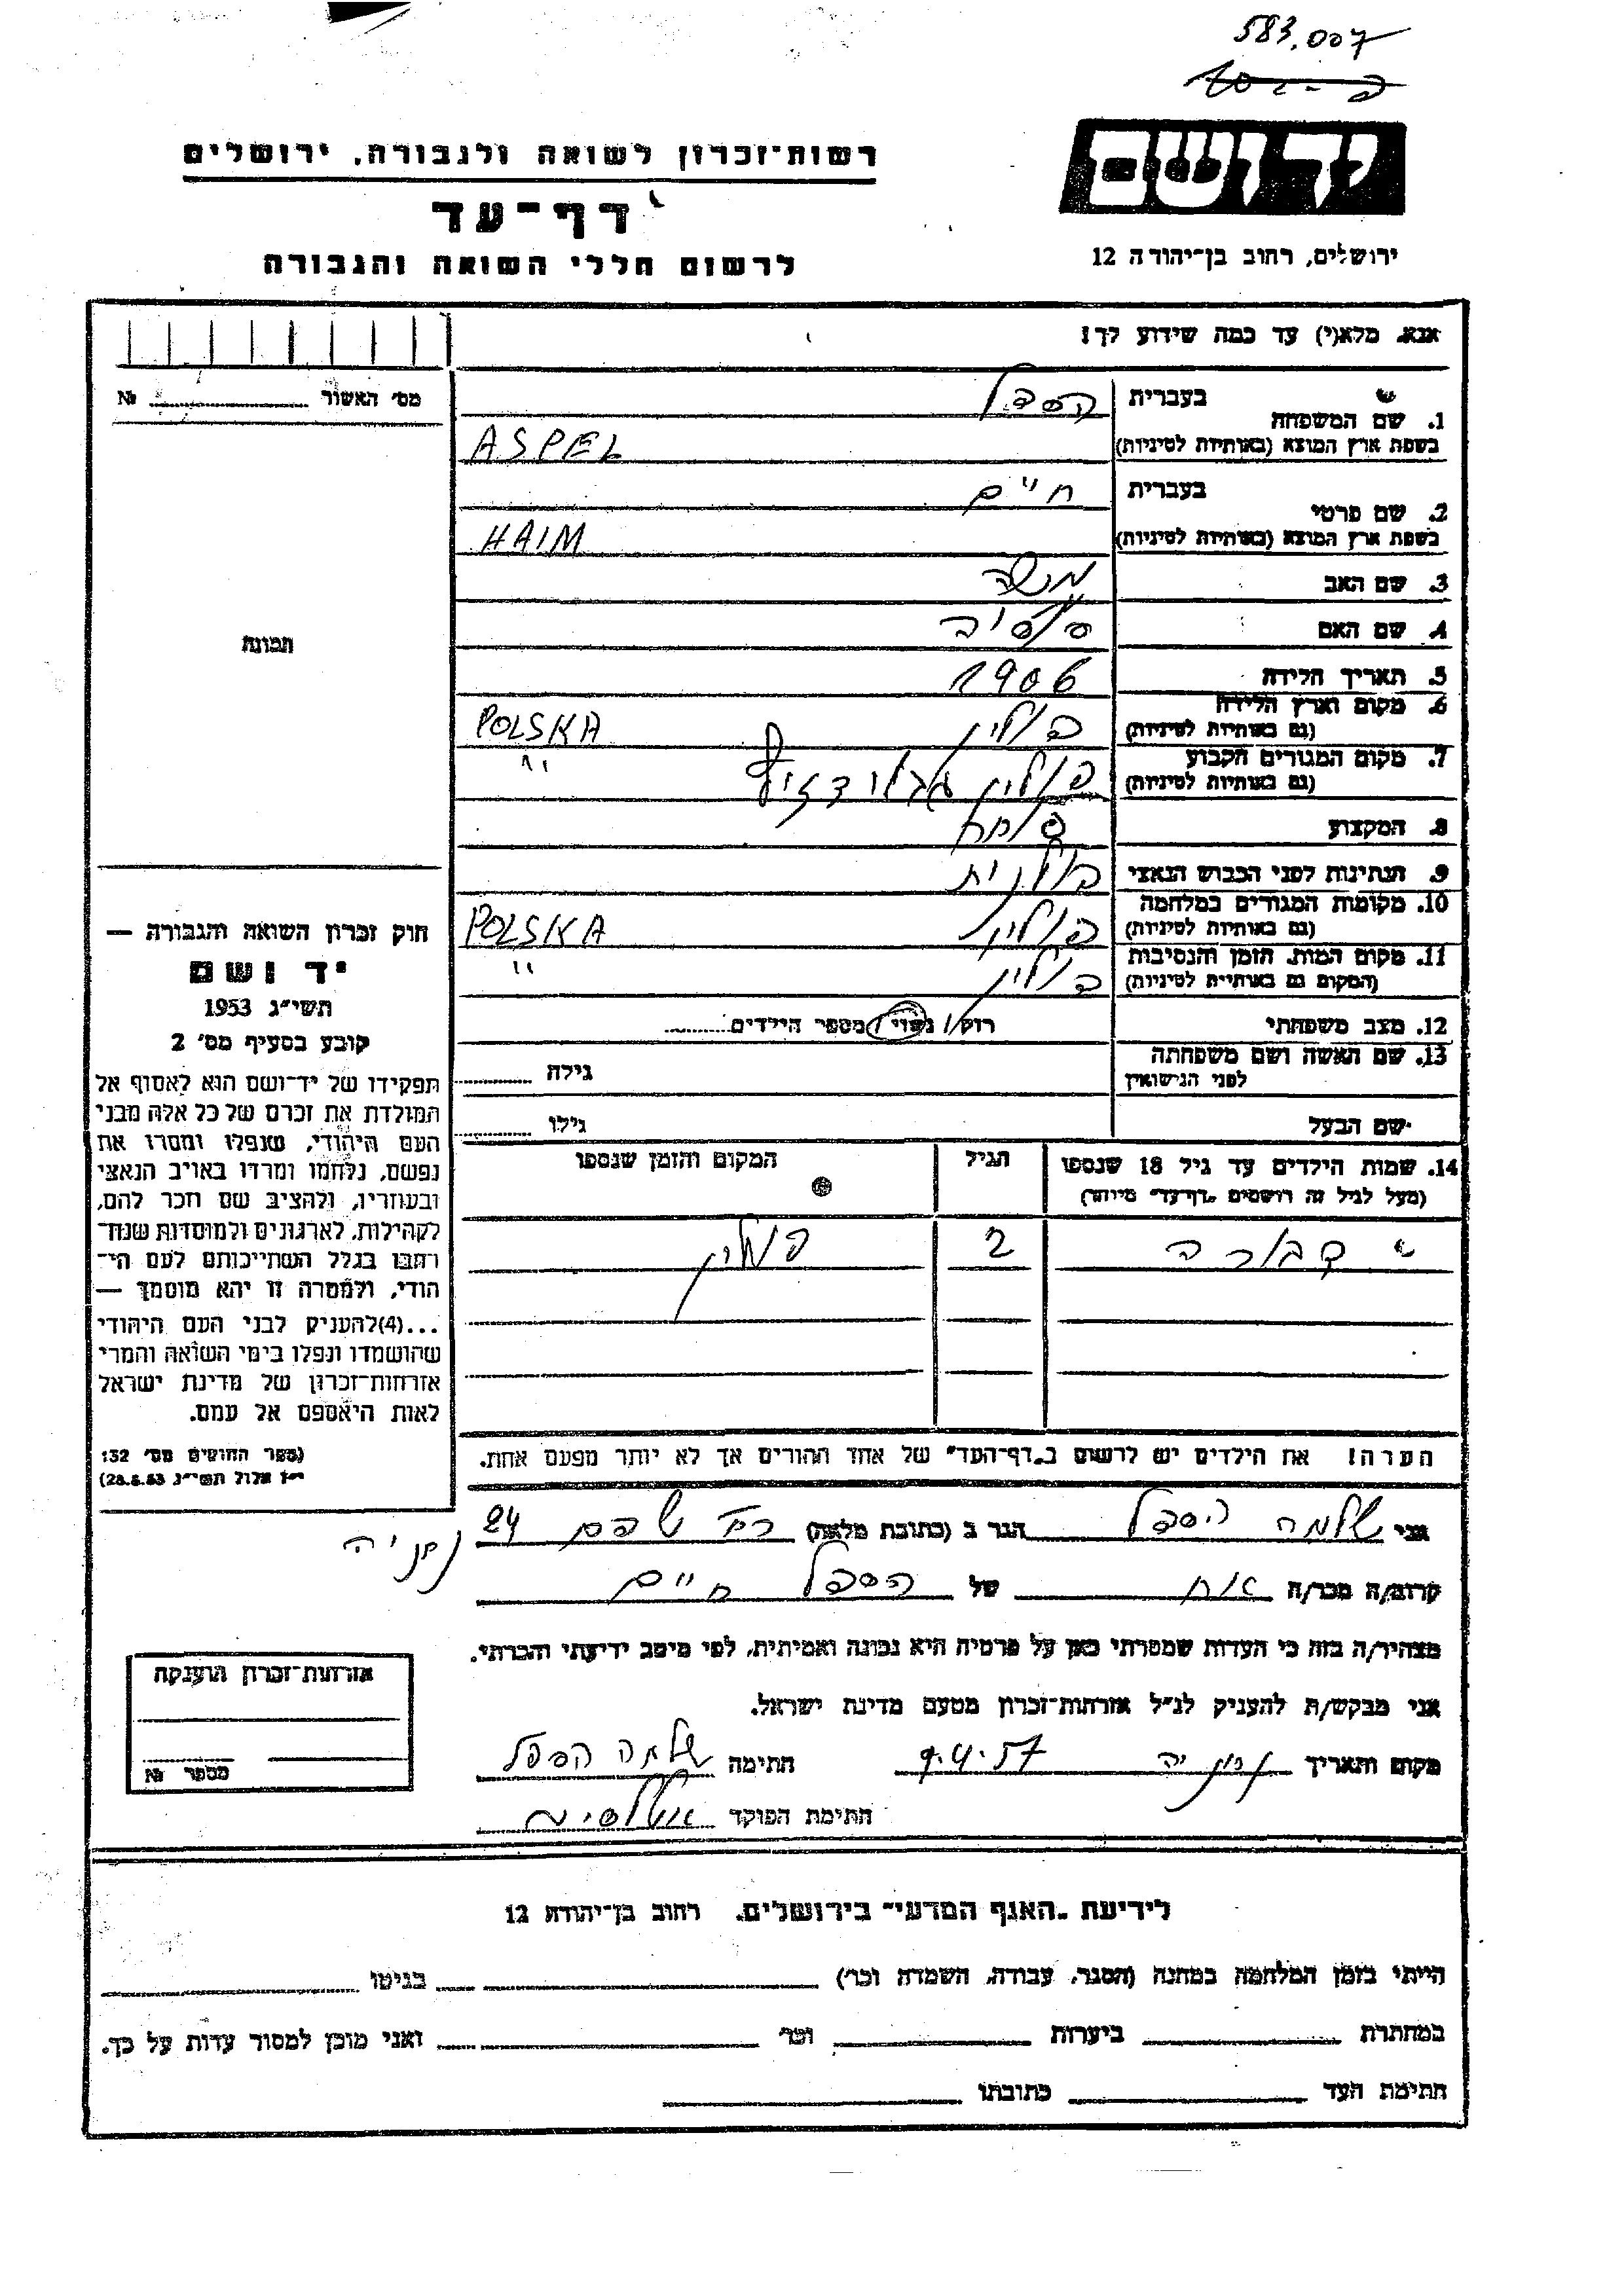 583,007
יד ושם
רשות־זכרון לשואה ולגבורה, ירושלים
דף־עד
לרשום חללי השואה והגבורה
ירושלים, רחוב בן־יהודה 12
אנא, מלא(י) עד כמה שידוע לך!
מס׳ האשור № 
1. שם המשפחה בעברית הספל
בשפת ארץ המוצא (באותיות לטיניות) ASPEL
2. שם פרטי בעברית חיים
בשפת ארץ המוצא (באותיות לטיניות) HAIM
3. שם האב משה
4. שם האם
5. תאריך הלידה 1906
6. מקום וארץ הלידה (גם באותיות לטיניות) פולין POLSKA
7. מקום המגורים הקבוע (גם באותיות לטיניות) פולין " "
8. המקצוע
9. הנתינות לפני הכבוש הנאצי פולנית
10. מקומות המגורים במלחמה (גם באותיות לטיניות) פולין POLSKA
11. מקום המות, הזמן והנסיבות (המקום גם באותיות לטיניות) פולין " "
12. מצב משפחתי רווק/ נשוי/ מספר הילדים
13. שם האשה ושם משפחתה לפני הנישואין גילה
שם הבעל גילו
14. שמות הילדים עד גיל 18 שנספו (מעל לגיל זה רושמים "דף־עד" מיוחד) הגיל המקום והזמן שנספו
דבורה 2 פולין
הערה! את הילדים יש לרשום ב"דף־העד" של אחד ההורים אך לא יותר מפעם אחת.
תמונה
חוק זכרון השואה והגבורה —
יד ושם
תשי״ג 1953
קובע בסעיף מס׳ 2
תפקידו של יד־ושם הוא לאסוף אל
המולדת את זכרם של כל אלה מבני
העם היהודי, שנפלו ומסרו את
נפשם, נלחמו ומרדו באויב הנאצי
ובעוזריו, ולהציב שם וזכר להם,
לקהילות, לארגונים ולמוסדות שנח־
רבו בגלל השתייכותם לעם הי־
הודי, ולמטרה זו יהא מוסמך —
...(4)להעניק לבני העם היהודי
שהושמדו ונפלו בימי השואה והמרי
אזרחות־זכרון של מדינת ישראל
לאות היאספם אל עמם.
(ספר החוקים מס׳ 132
י״ז אלול תשי״ג 28.8.53)
אני שלמה הספל הגר ב (כתובת מלאה) 24 נתניה
קרוב/ה מכר/ה אח של הספל חיים
מצהיר/ה בזה כי העדות שמסרתי כאן על פרטיה היא נכונה ואמיתית, לפי מיטב ידיעתי והכרתי.
אני מבקש/ת להעניק לנ״ל אזרחות־זכרון מטעם מדינת ישראל.
מקום ותאריך נתניה 9.4.57 חתימה שלמה הספל
חתימת הפוקד
אזרחות־זכרון הוענקה
מספר №
לידיעת "האגף המדעי" בירושלים, רחוב בן־יהודה 12
הייתי בזמן המלחמה במחנה (הסגר, עבודה, השמדה וכו׳) בגיטו
במחתרת ביערות וכו׳ ואני מוכן למסור עדות על כך.
חתימת העד כתובתו